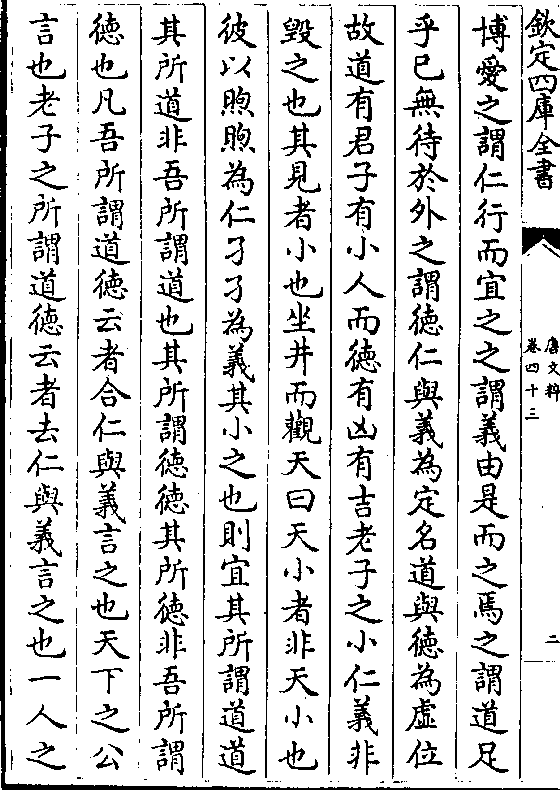 欽定四庫全書
唐文粹
卷四十三
二
博愛之謂仁行而宜之之謂義由是而之焉之謂道足
乎已無待於外之謂徳仁與義為定名道與徳為虛位
故道有君子有小人而徳有凶有吉老子之小仁義非
毀之也其見者小也坐井而觀天曰天小者非天小也
彼以煦煦為仁孑孑為義其小之也則宜其所謂道道
其所道非吾所謂道也其所謂徳徳其所徳非吾所謂
徳也凡吾所謂道徳云者合仁與義言之也天下之公
言也老子之所謂道徳云者去仁與義言之也一人之